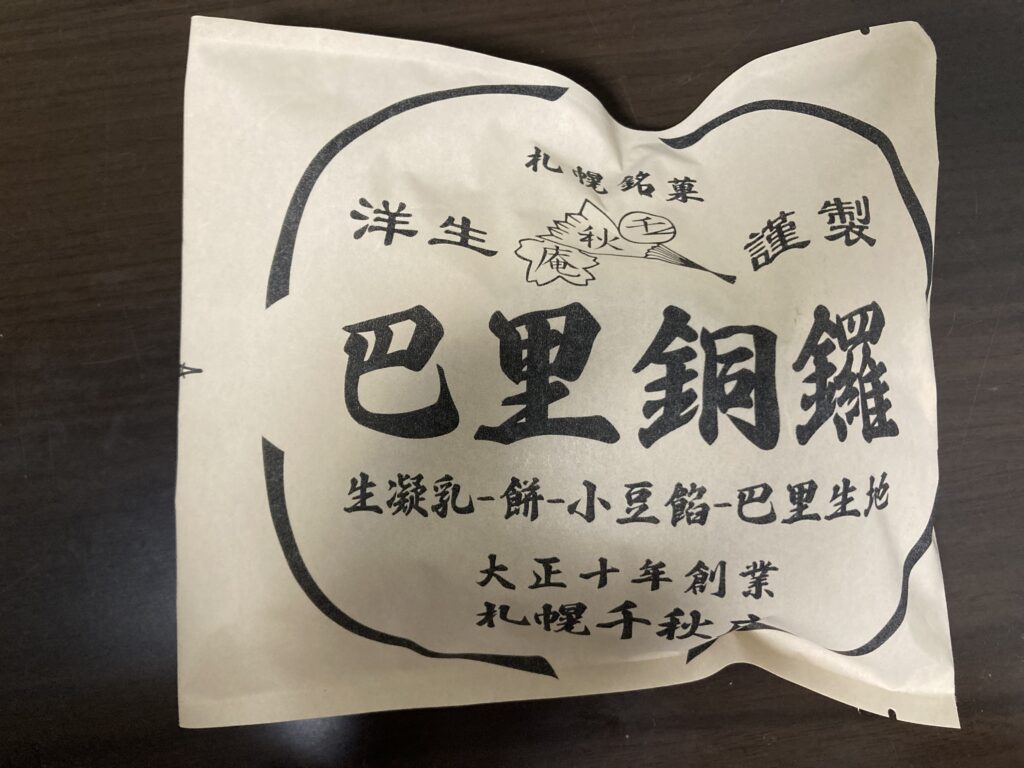 札幌銘菓
洋生 千秋庵 謹製
巴里銅鑼
生凝乳-餅-小豆餡-巴里生地
大正十年創業
札幌千秋庵